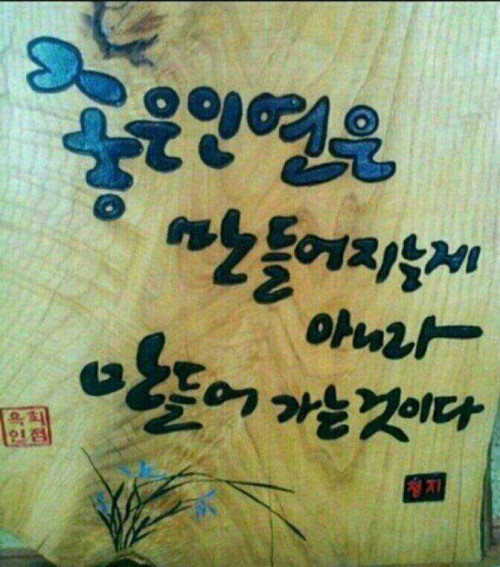 좋은인연은
만들어지는게
아니라
만들어 가는것이다
청지